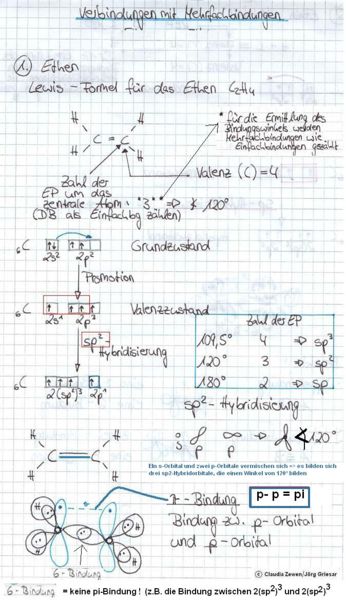 Verbindungen mit Mehrfachbindungen
1. Ethen
Lewis-Formel für das Ethen C₂H₄
* für die Ermittlung des
Bindungswinkels werden
Mehrfachbindungen wie
Einfachbindungen gezählt
H H
C = C
H H
Valenz (C) = 4
Zahl der
EP um das
zentrale Atom: "3"* ⇒ ∢ 120°
(DB als Einfachbg zählen)
₆C ↑↓ ↑ ↑ Grundzustand
2s² 2p²
Promotion
₆C ↑ ↑ ↑ ↑ Valenzzustand
2s¹ 2p³
sp²-
Hybridisierung
Zahl der EP
109,5° 4 ⇒ sp³
120° 3 ⇒ sp²
180° 2 ⇒ sp
₆C ↑ ↑ ↑ ↑
2(sp²)³ 2p¹
sp²-Hybridisierung
s p p ∢120°
Ein s-Orbital und zwei p-Orbitale vermischen sich => es bilden sich
drei sp2-Hybridorbitale, die einen Winkel von 120° bilden
H H
C = C
H H
π-Bindung
p- p = pi
Bindung zw. p-Orbital
und p-Orbital
6-Bindung
© Claudia Zewen/Jörg Griesar
6-Bindung = keine pi-Bindung ! (z.B. die Bindung zwischen 2(sp²)³ und 2(sp²)³